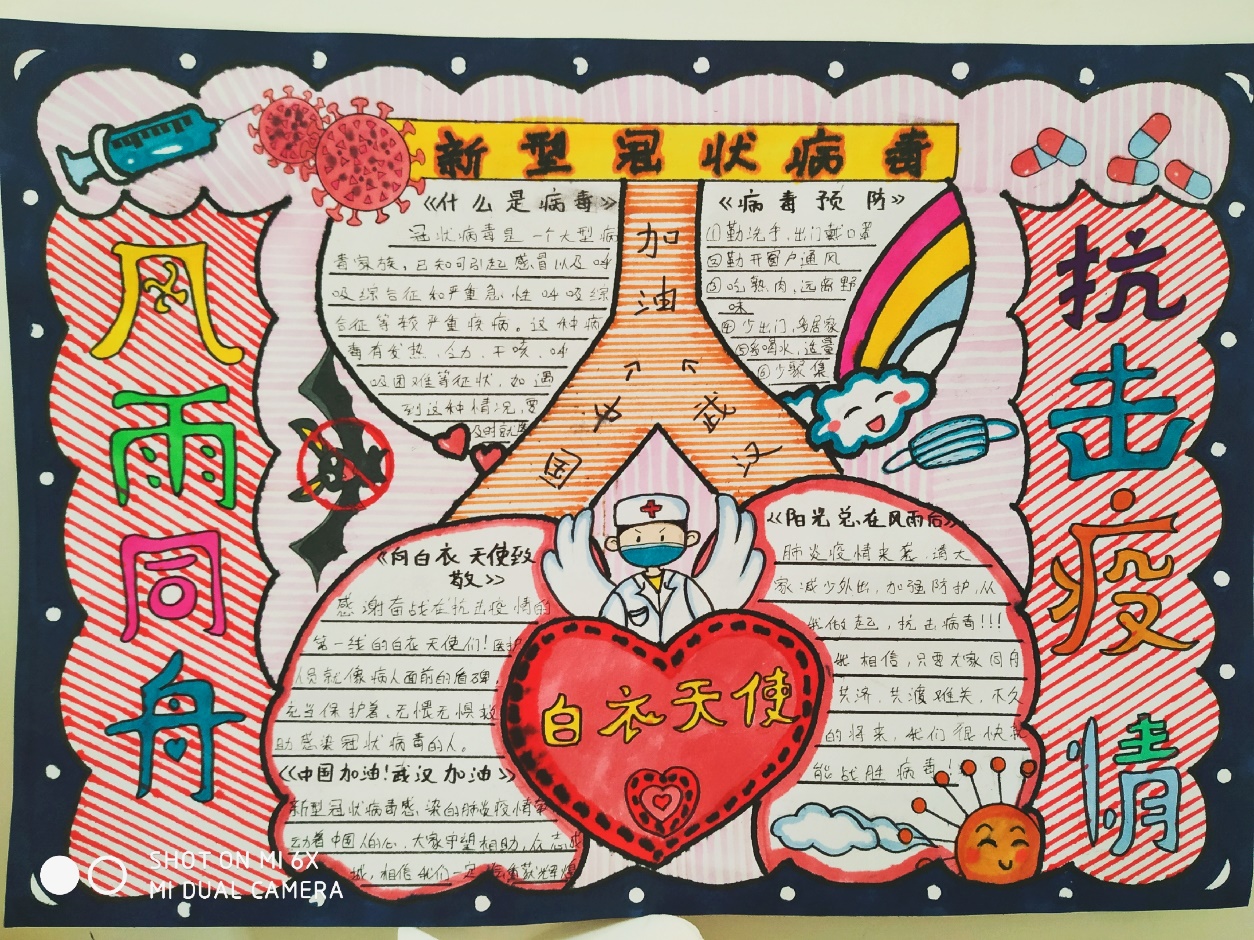 新型冠状病毒
风雨同舟
抗击疫情
《什么是病毒》
冠状病毒是一个大型病
毒家族,已知可引起感冒以及呼
吸综合征和严重急性呼吸综
合征等较严重疾病。这种病
毒有发热、乏力、干咳、呼
吸困难等征状,如遇
到这种情况,要
及时就
加油
中国
武汉
《病毒预防》
①勤洗手,出门戴口罩
②勤开窗户通风
③吃熟肉,远离野
味
④少出门,多居家
⑤多喝水,适量
⑥少聚集
《向白衣天使致
敬》
感谢奋战在抗击疫情的
第一线的白衣天使们!医护
人员就像病人面前的盾牌,
充当保护着,无惧无惧救
助感染冠状病毒的人。
《中国加油!武汉加油》
新型冠状病毒感染的肺炎疫情牵
动着中国人的心,大家守望相助,众志成
城,相信我们一定
白衣天使
《阳光总在风雨后》
肺炎疫情来袭,请大
家减少外出,加强防护,从
我做起,抗击病毒!!!
我相信,只要大家同舟
共济,共渡难关,不久
的将来,我们很快就
能战胜病毒!
SHOT ON MI 6X
MI DUAL CAMERA